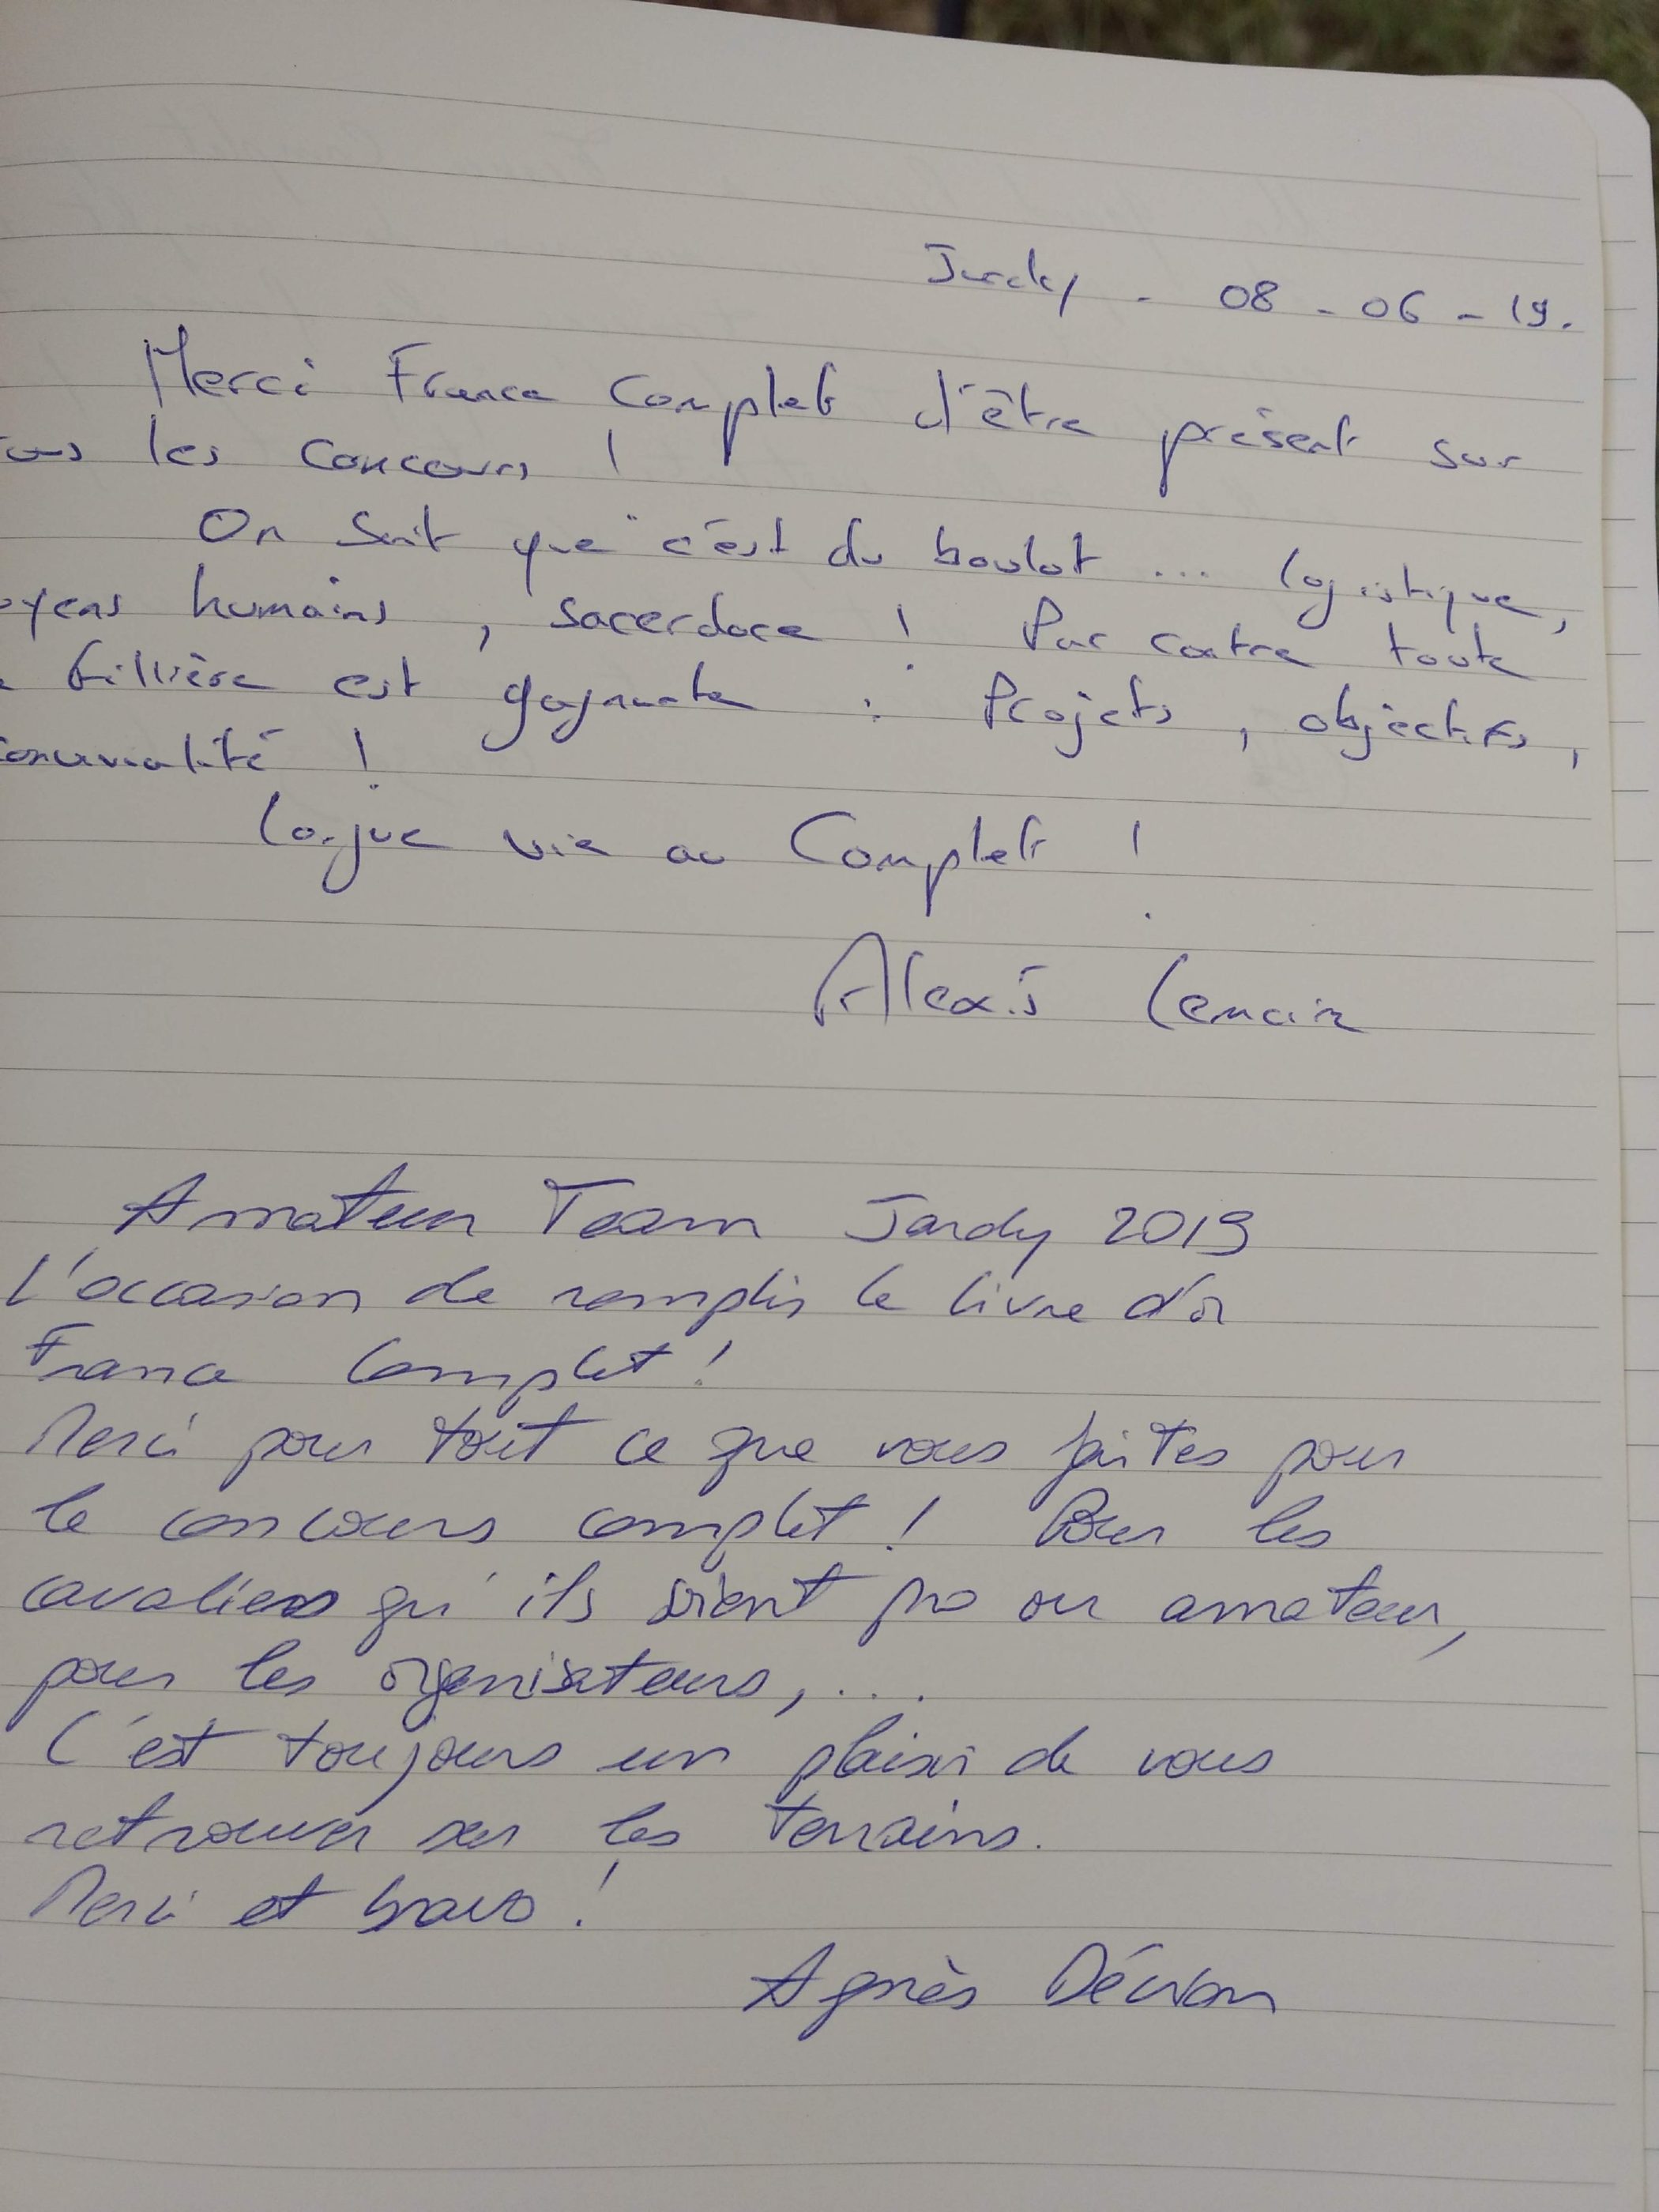 Jardy - 08 - 06 - 19.
Merci France Complet d'être présent sur
les concours !
On sait que c'est du boulot ... logistique,
humains, sacerdoce ! Par contre toute
fillière est gagnante : Projets, objectifs,
Longue vie au Complet !
Alexis Lemaire
Amateur Team Jardy 2019
L'occasion de remplir le livre d'or
France Complet !
Merci pour tout ce que vous faites pour
le concours complet ! Pour les
cavaliers qu'ils soient pro ou amateur,
pour les organisateurs, ...
C'est toujours un plaisir de vous
retrouver sur les terrains.
Merci et bravo !
Agnès